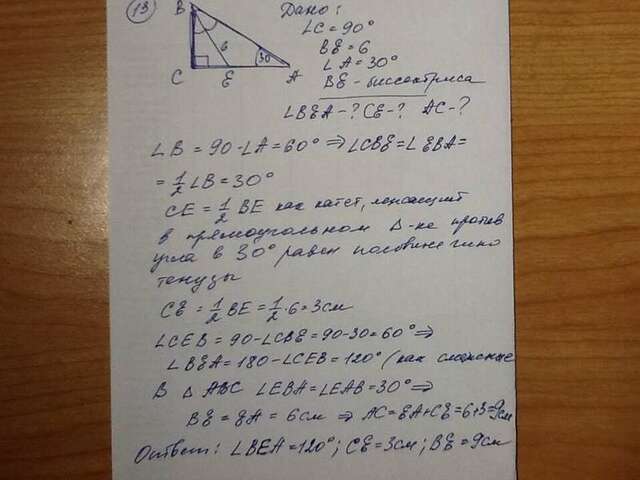 13
B
C
E
A
6
30
Дано:
∠C = 90°
BE = 6
∠A = 30°
BE - биссектриса
∠BEA - ? CE - ? AC - ?
∠B = 90 - ∠A = 60° ⇒ ∠CBE = ∠EBA =
= 1/2 ∠B = 30°
CE = 1/2 BE как катет, лежащий
в прямоугольном Δ-ке против
угла в 30° равен половине гипо
тенузы
CE = 1/2 BE = 1/2 · 6 = 3 см
∠CEB = 90 - ∠CBE = 90 - 30 = 60° ⇒
∠BEA = 180 - ∠CEB = 120° (как смежные
В Δ ABC ∠EBA = ∠EAB = 30° ⇒
BE = EA = 6 см ⇒ AC = EA + CE = 6 + 3 = 9 см
Ответ: ∠BEA = 120°; CE = 3 см; BE = 9 см